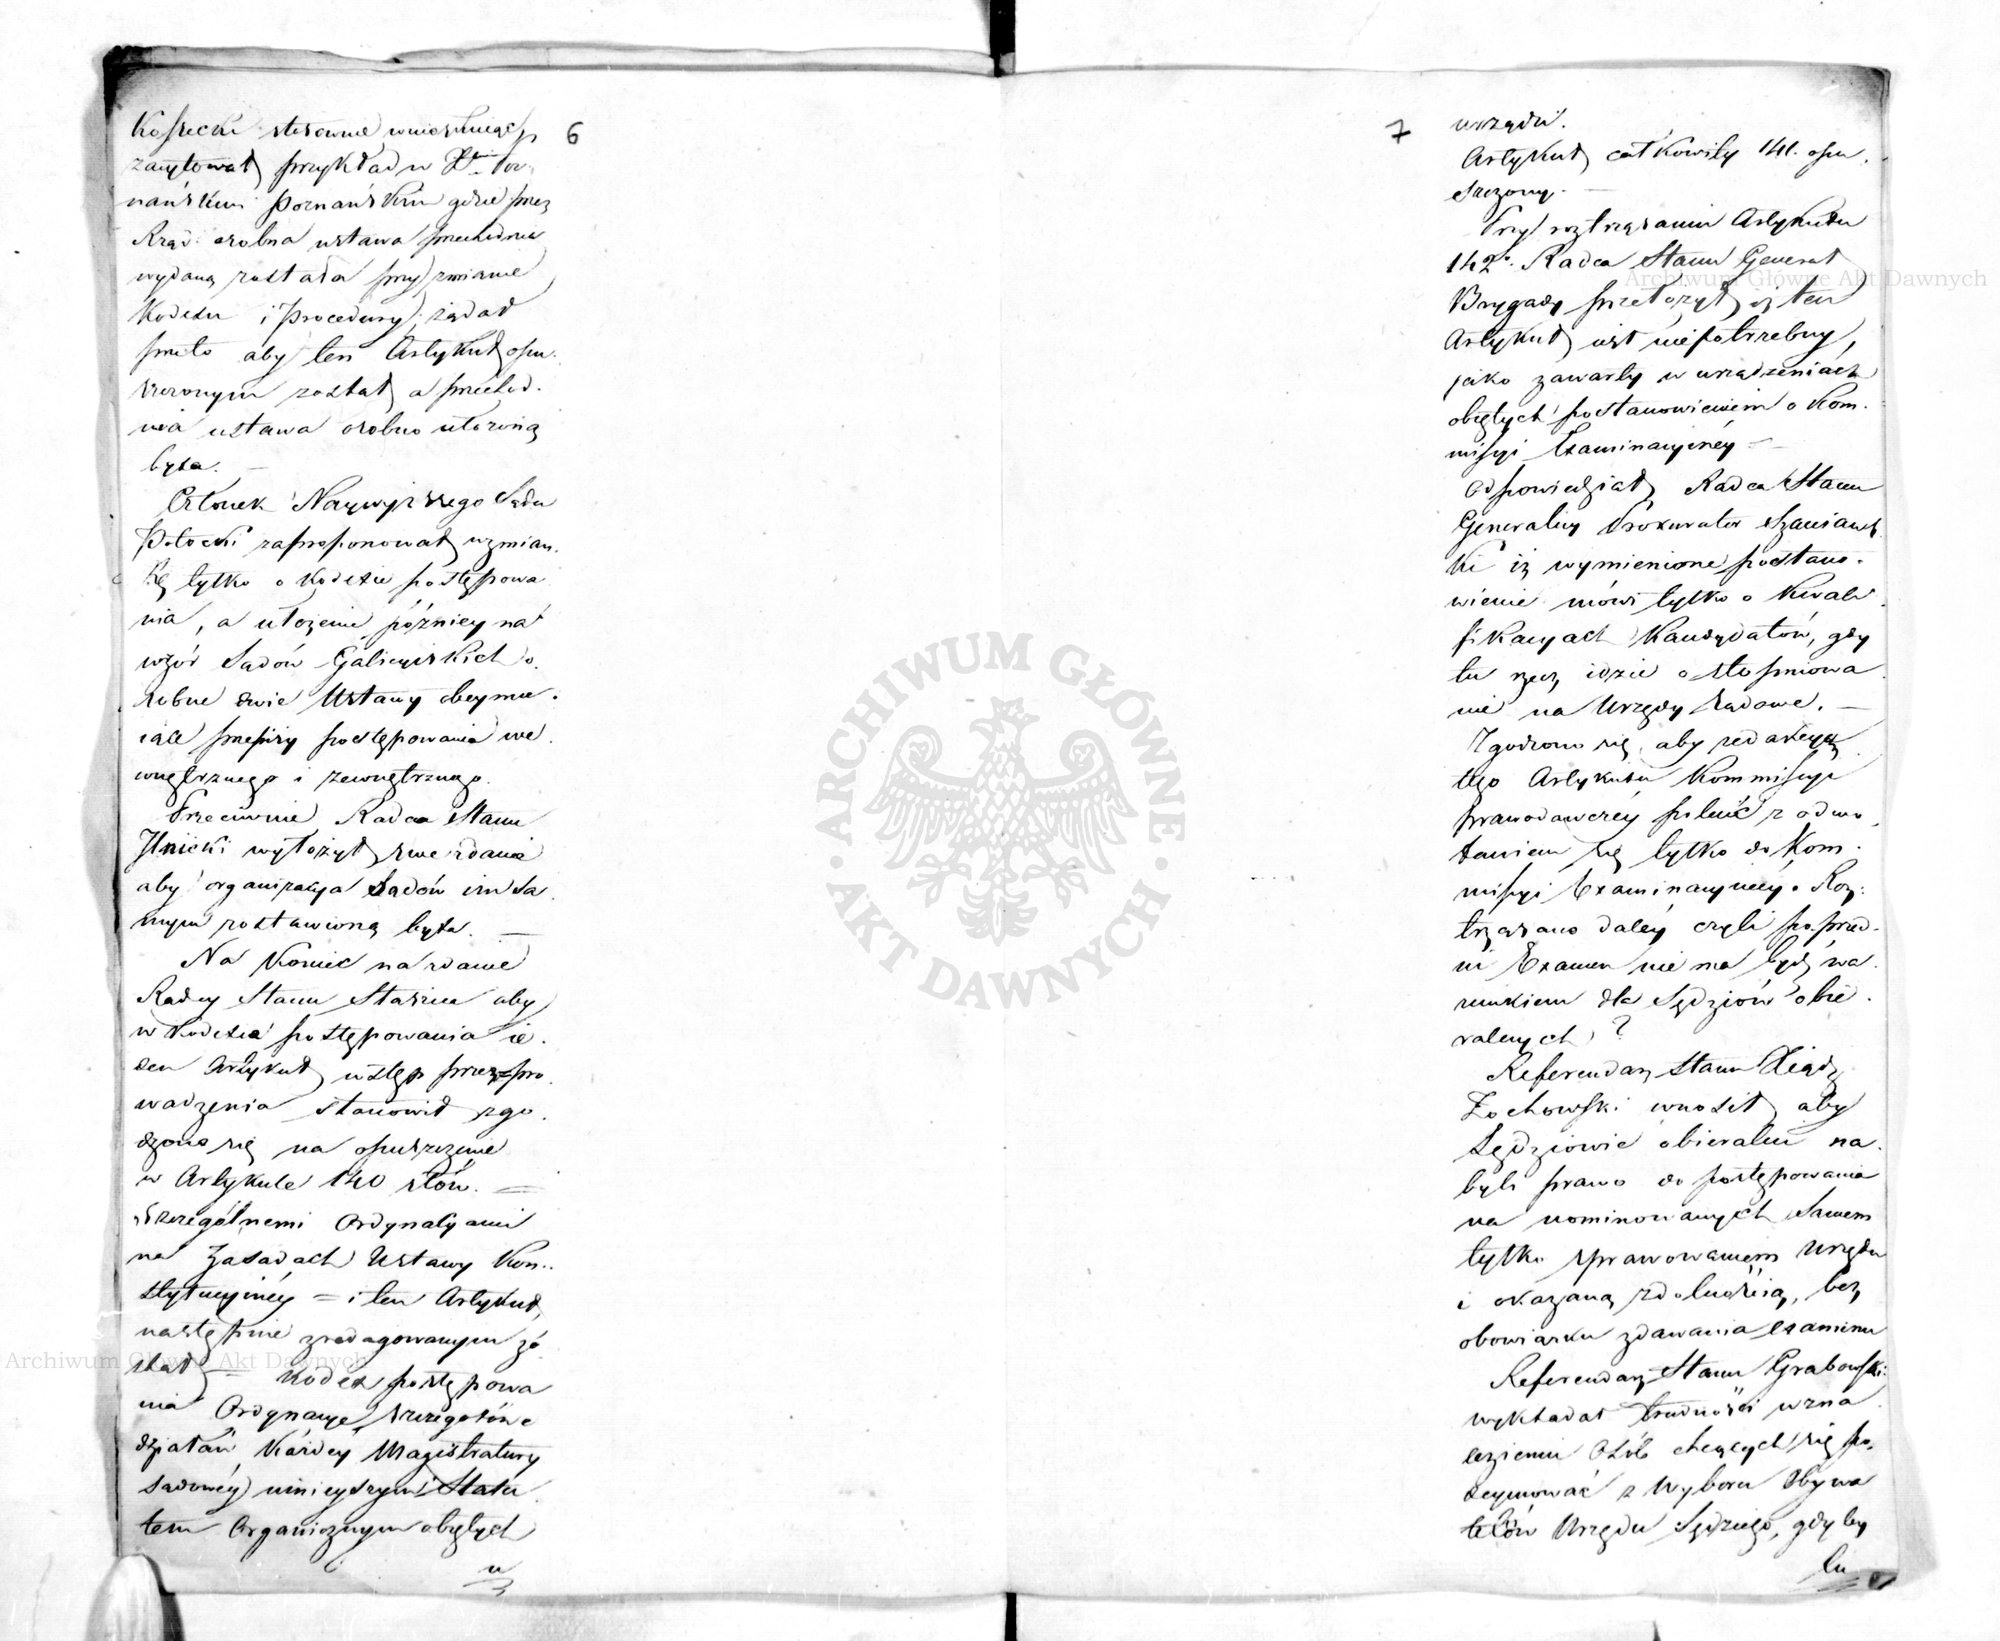 6
Kossecki stosownie wnioskując
zacytował przykład w Xtwie Poz
nańskim Poznańskim gdzie przez
Rząd osobna ustawa przechodnia
wydaną została przy zmianie
Kodexu i Procedury; żądał
przeto aby ten Artykuł opu-
szczonym został a przechod-
nia ustawa osobno ułożoną
była. —
Członek Naywyższego Sądu
Potocki zaproponował wzmian-
kę tylko o Kodexie postępowa
nia, a ułożenie późniey na
wzór Sądów Galicyiskich o-
sobne dwie Ustawy obeymu-
iące przepisy postępowania we-
wnętrznego i zewnętrznego.
Przeciwnie Radca Stanu
Ilnicki wyłożył swe zdanie
aby organizacya Sądów im sa
mym zostawioną była. —
Na koniec na zdanie
Radcy Stanu Staszica aby
w Kodexie postępowania ie-
den Artykuł wstęp przez pro
wadzenia stanowił zgo-
dzono się na opuszczenie
w Artykule 140 słów. =
szczególnemi Ordynacyami
na Zasadach Ustawy Kon-
stytucyiney = i ten Artykuł
następnie zredagowanym zo
stał = Kodex postępowa
nia Ordynacye szczegółowe
działań każdey Magistratury
sądowéy ninieyszym Statu
tem Organicznym obiętych
u
7
urządzi.
Artykuł całkowity 141. opu-
szczony. —
Przy roztrząsaniu Artykułu
142o. Radca Stanu Generał
Brygady przełożył iż ten
Artykuł iest niepotrzebny,
jako zawarty w urządzeniach
obiętych postanowieniem o Kom-
missyi Examinacyinéy —
Odpowiedział Radca Stanu
Generalny Prokurator Szaniaws
ki iż wymienione postano-
wienie mówi tylko o kwali
fikacyach Kandydatów, gdy
tu rzecz idzie o stopniowa
nie na Urzędy sądowe. —
Zgodzono się, aby redakcyą
tego Artykułu Kommissyi
prawodawczéy polecić z odwo
łaniem się tylko do Kom-
missyi Examinacyinéy. Roz-
trząsano daléy czyli poprzed-
ni Examen nie ma być wa
runkiem dla Sędziów obie-
ralnych?
Referendarz Stanu Xiądz
Żochowski wnosił aby
Sędziowie obieralni na-
byli prawo do postępowania
na nominowanych samem
tylko sprawowaniem Urzędu
i okazaną zdolnością, bez
obowiązku zdawania examinu
Referendarz Stanu Grabowski
wykładał trudności w zna
lezieniu Osób chcących się po-
deymować z Wyboru Obywa
telów Urzędu Sędziego, gdyby
tu
ARCHIWUM GŁÓWNE
AKT DAWNYCH
Archiwum Główne Akt Dawnych
Archiwum Główne Akt Dawnych